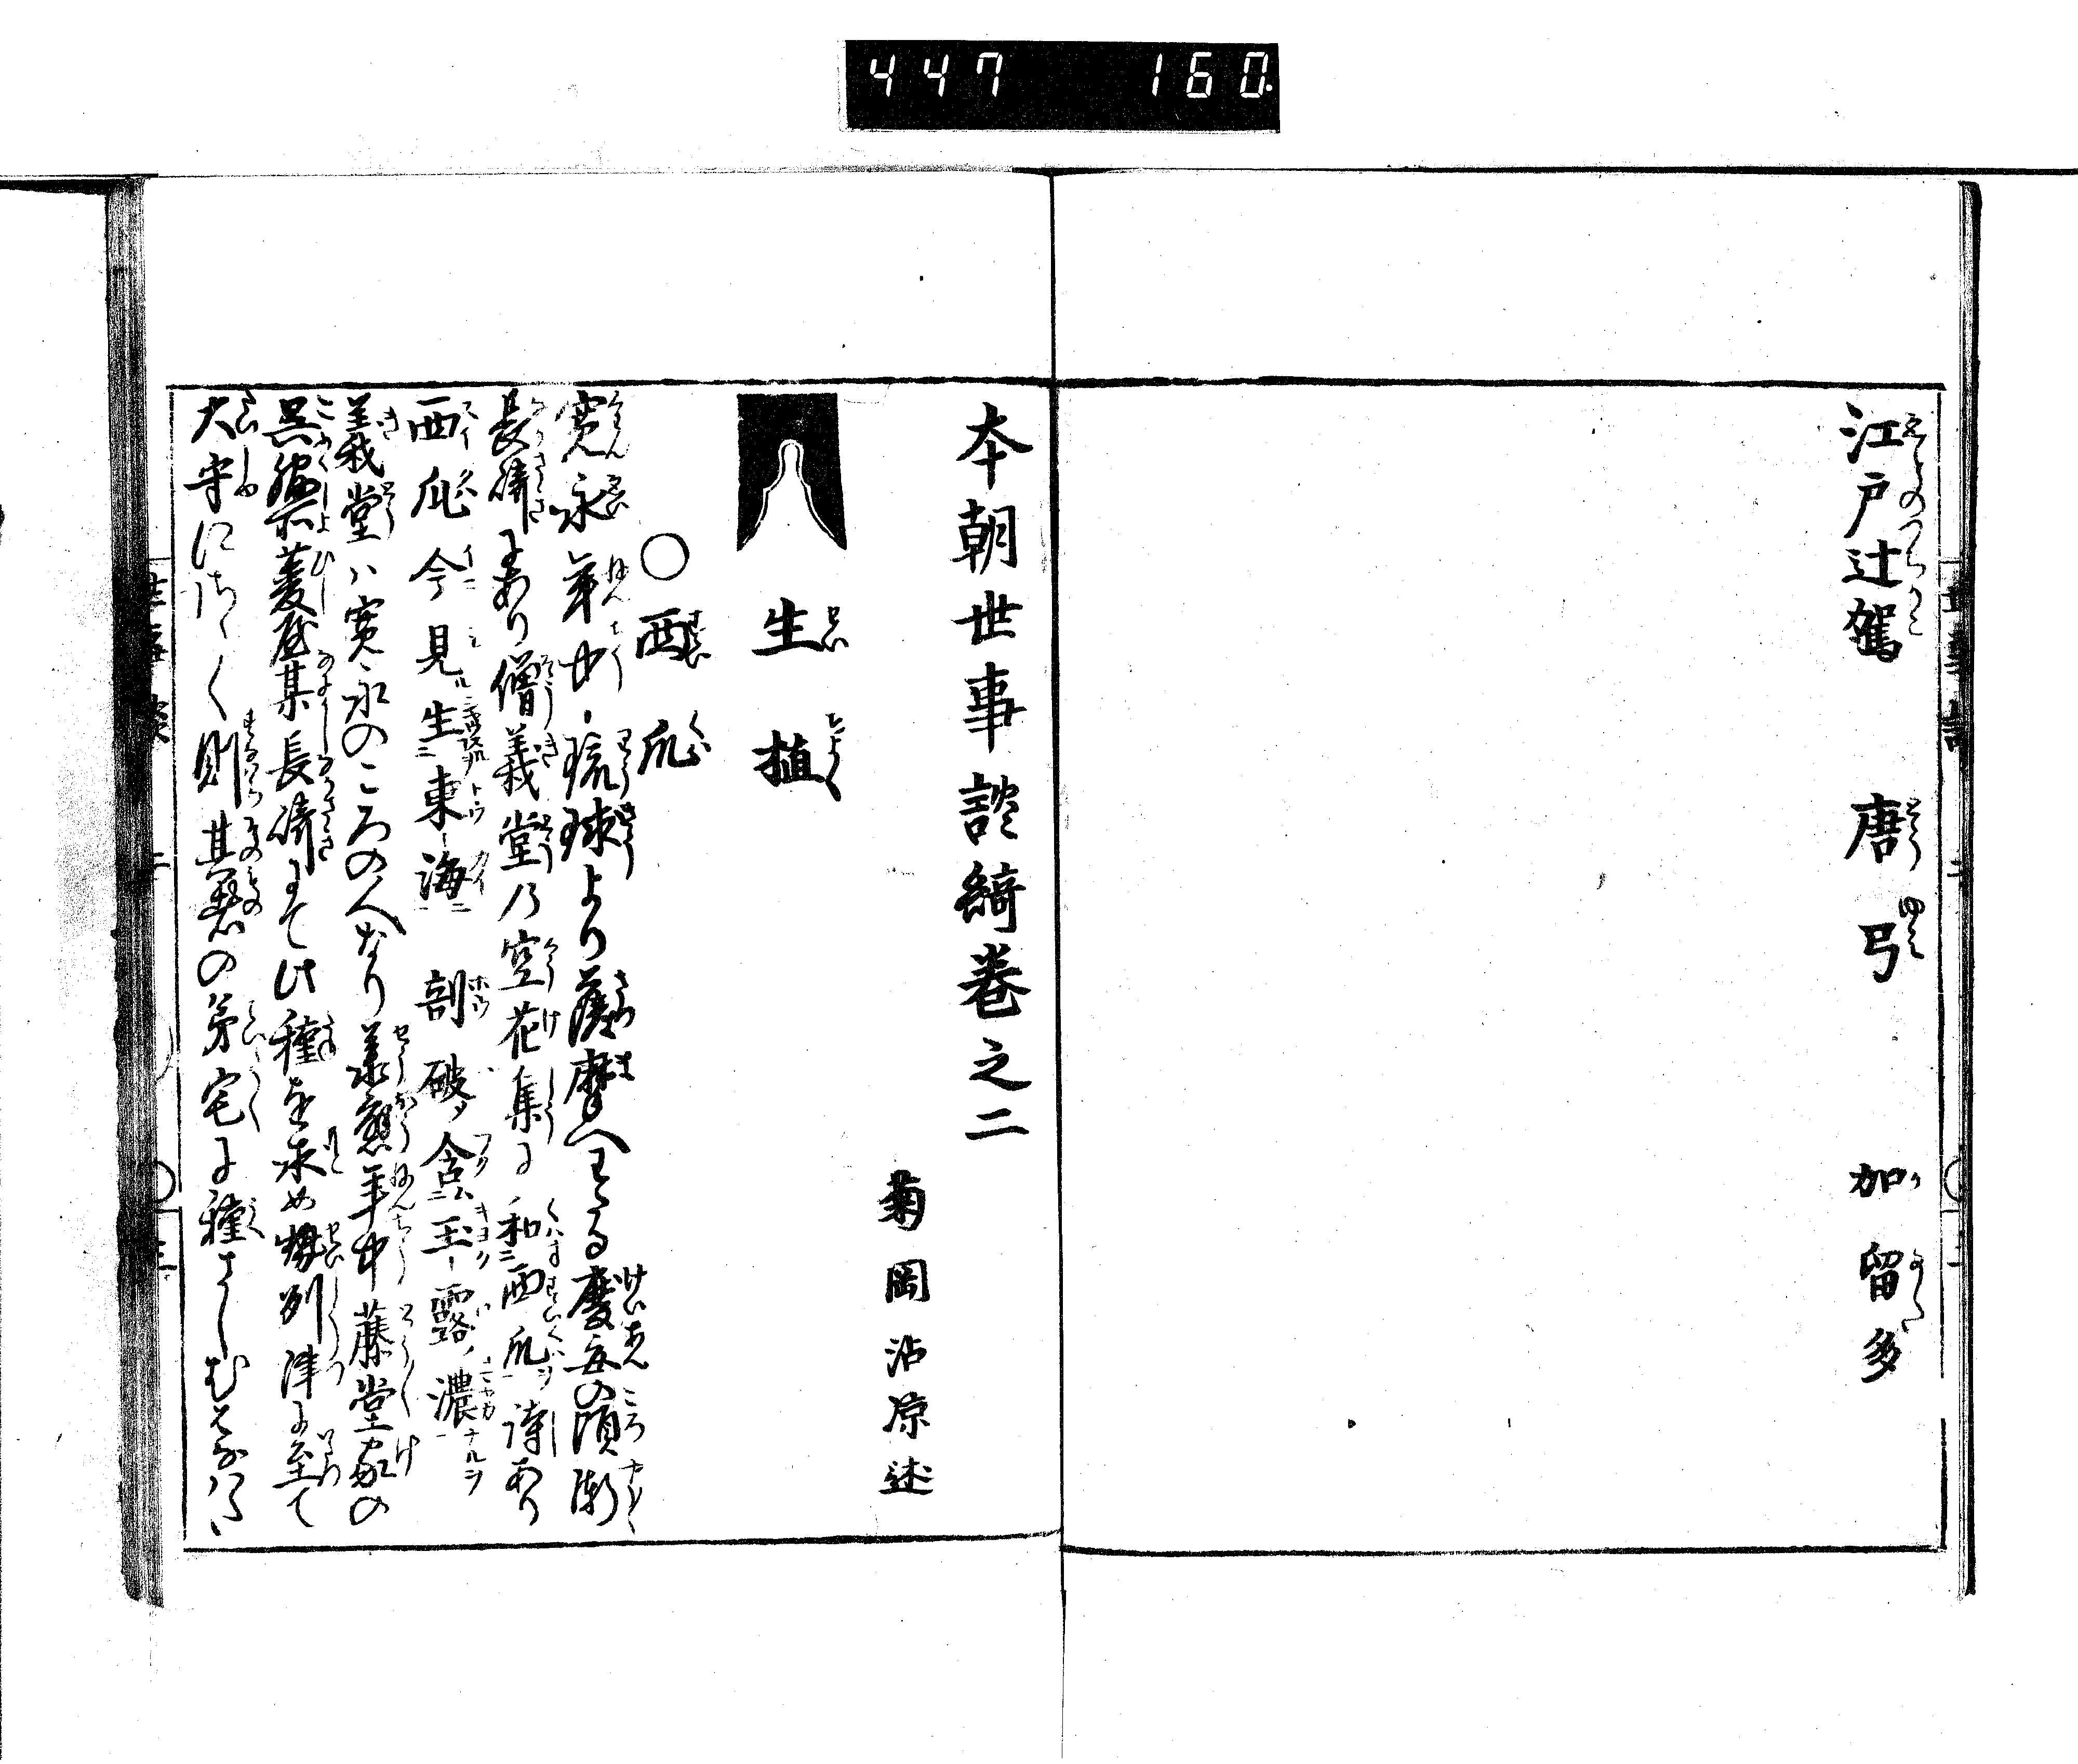 447 160
江戸辻駕 唐弓 加留多
本朝世事談綺巻之二
菊岡沾凉述
生植
○西瓜
寛永年中琉球より薩摩へわたる慶安の頃漸
長崎にあり僧義堂乃空花集に和西瓜詩あり
西瓜今見生東海剖破含玉露濃
義堂ハ寛永のころの人なり承應年中藤堂家の
呉服所菱屋某長崎にて此種を求め勢州津に至て
大守に
則其臣の弟宅に種さしむ